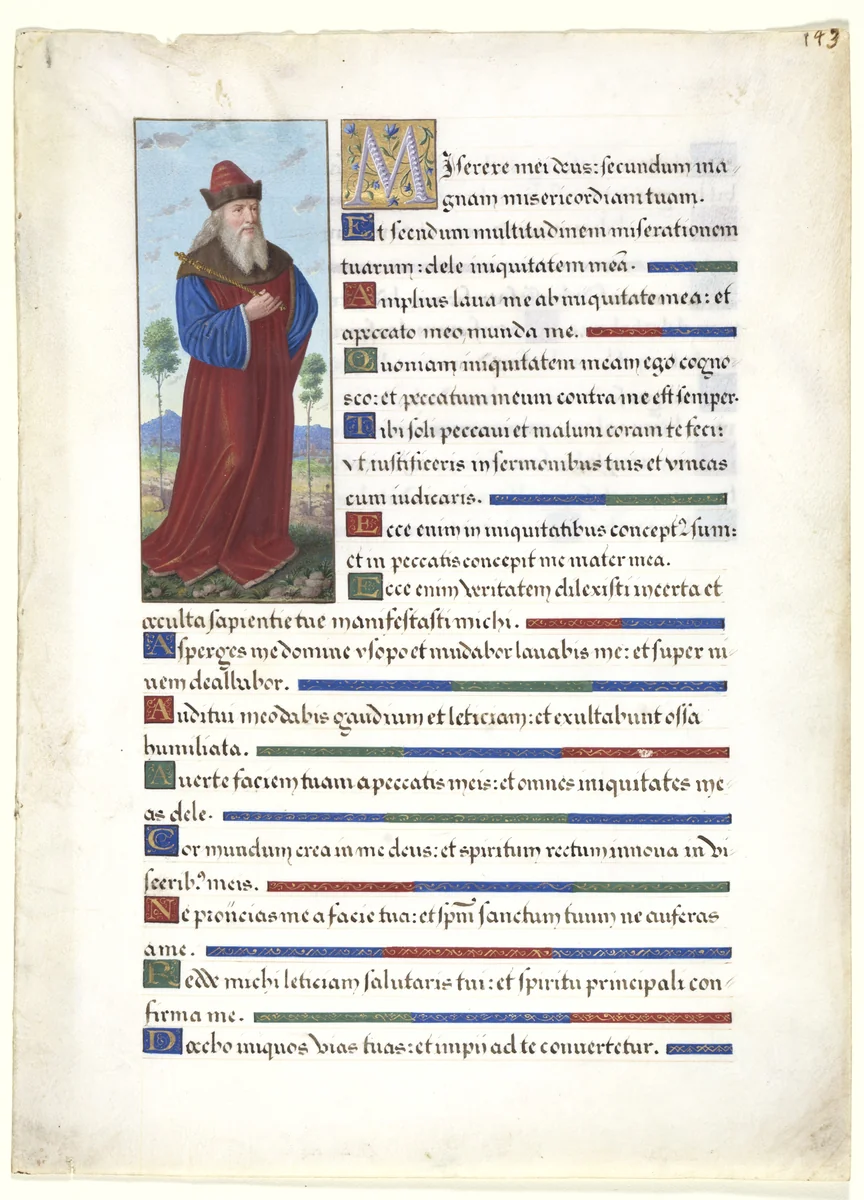 143
Miserere mei deus: secundum ma
gnam misericordiam tuam.
Et secundum multitudinem miserationem
tuarum: dele iniquitatem meā.
Amplius laua me ab iniquitate mea: et
apeccato meo munda me.
Quoniam iniquitatem meam ego cogno
sco: et peccatum meum contra me est semper.
Tibi soli peccaui et malum coram te feci:
vt iustificeris in sermonibus tuis et vincas
cum iudicaris.
Ecce enim in iniquitatibus concept9 sum:
et in peccatis concepit me mater mea.
Ecce enim veritatem dilexisti incerta et
occulta sapientie tue manifestasti michi.
Asperges me domine ysopo et mūdabor lauabis me: et super ni
uem dealbabor.
Auditui meo dabis gaudium et leticiam: et exultabunt ossa
humiliata.
Auerte faciem tuam a peccatis meis: et omnes iniquitates me
as dele.
Cor mundum crea in me deus: et spiritum rectum innoua in vi
scerib9 meis.
Ne proiicias me a facie tua: et spm̄ sanctum tuum ne auferas
ame.
Redde michi leticiam salutaris tui: et spiritu principali con
firma me.
Docebo iniquos vias tuas: et impii ad te conuertetur.